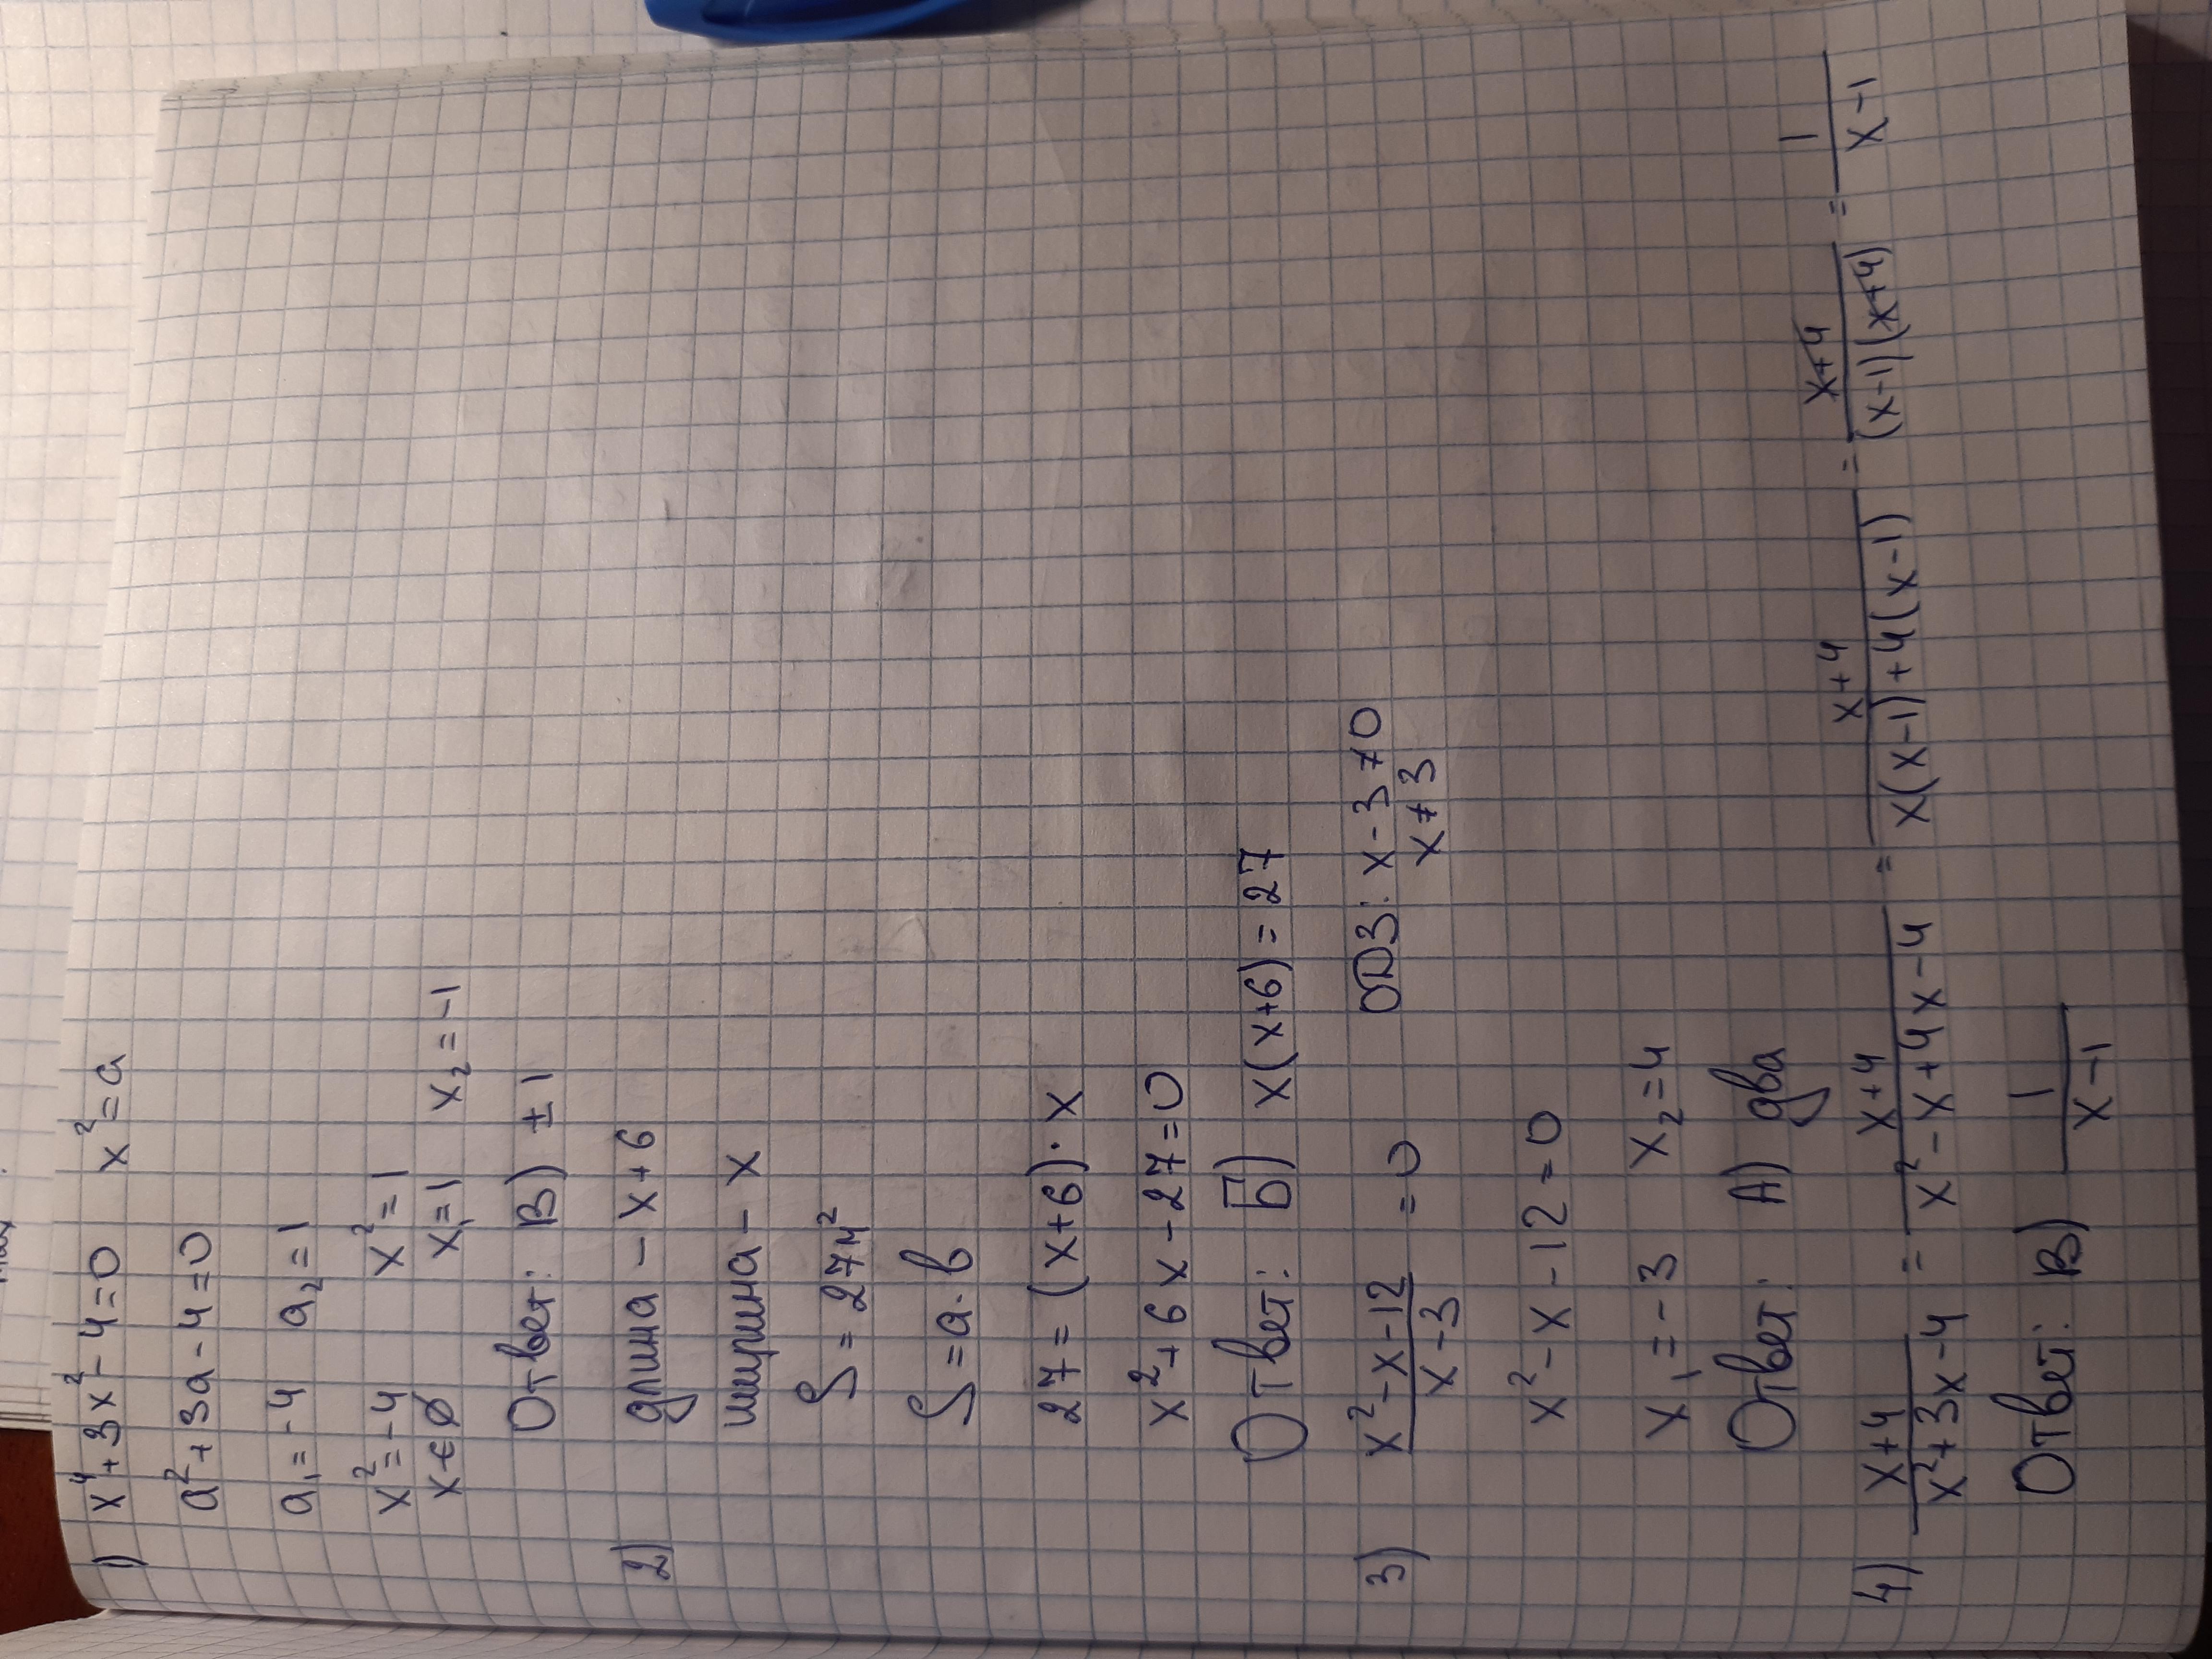 1) x⁴+3x²-4=0 x²=a
a²+3a-4=0
a₁=-4 a₂=1
x²=-4 x²=1
x∈∅ x₁=1 x₂=-1
Ответ: В) ±1
2) длина - x+6
ширина - x
S=27м²
S=a·b
27=(x+6)·x
x²+6x-27=0
Ответ: Б) x(x+6)=27
3) (x²-x-12)/(x-3) =0 ОДЗ: x-3≠0
x≠3
x²-x-12=0
x₁=-3 x₂=4
Ответ: А) два
4) (x+4)/(x²+3x-4) = (x+4)/(x²-x+4x-4) = (x+4)/(x(x-1)+4(x-1)) = (x+4)/((x-1)(x+4)) = 1/(x-1)
Ответ: В) 1/(x-1)